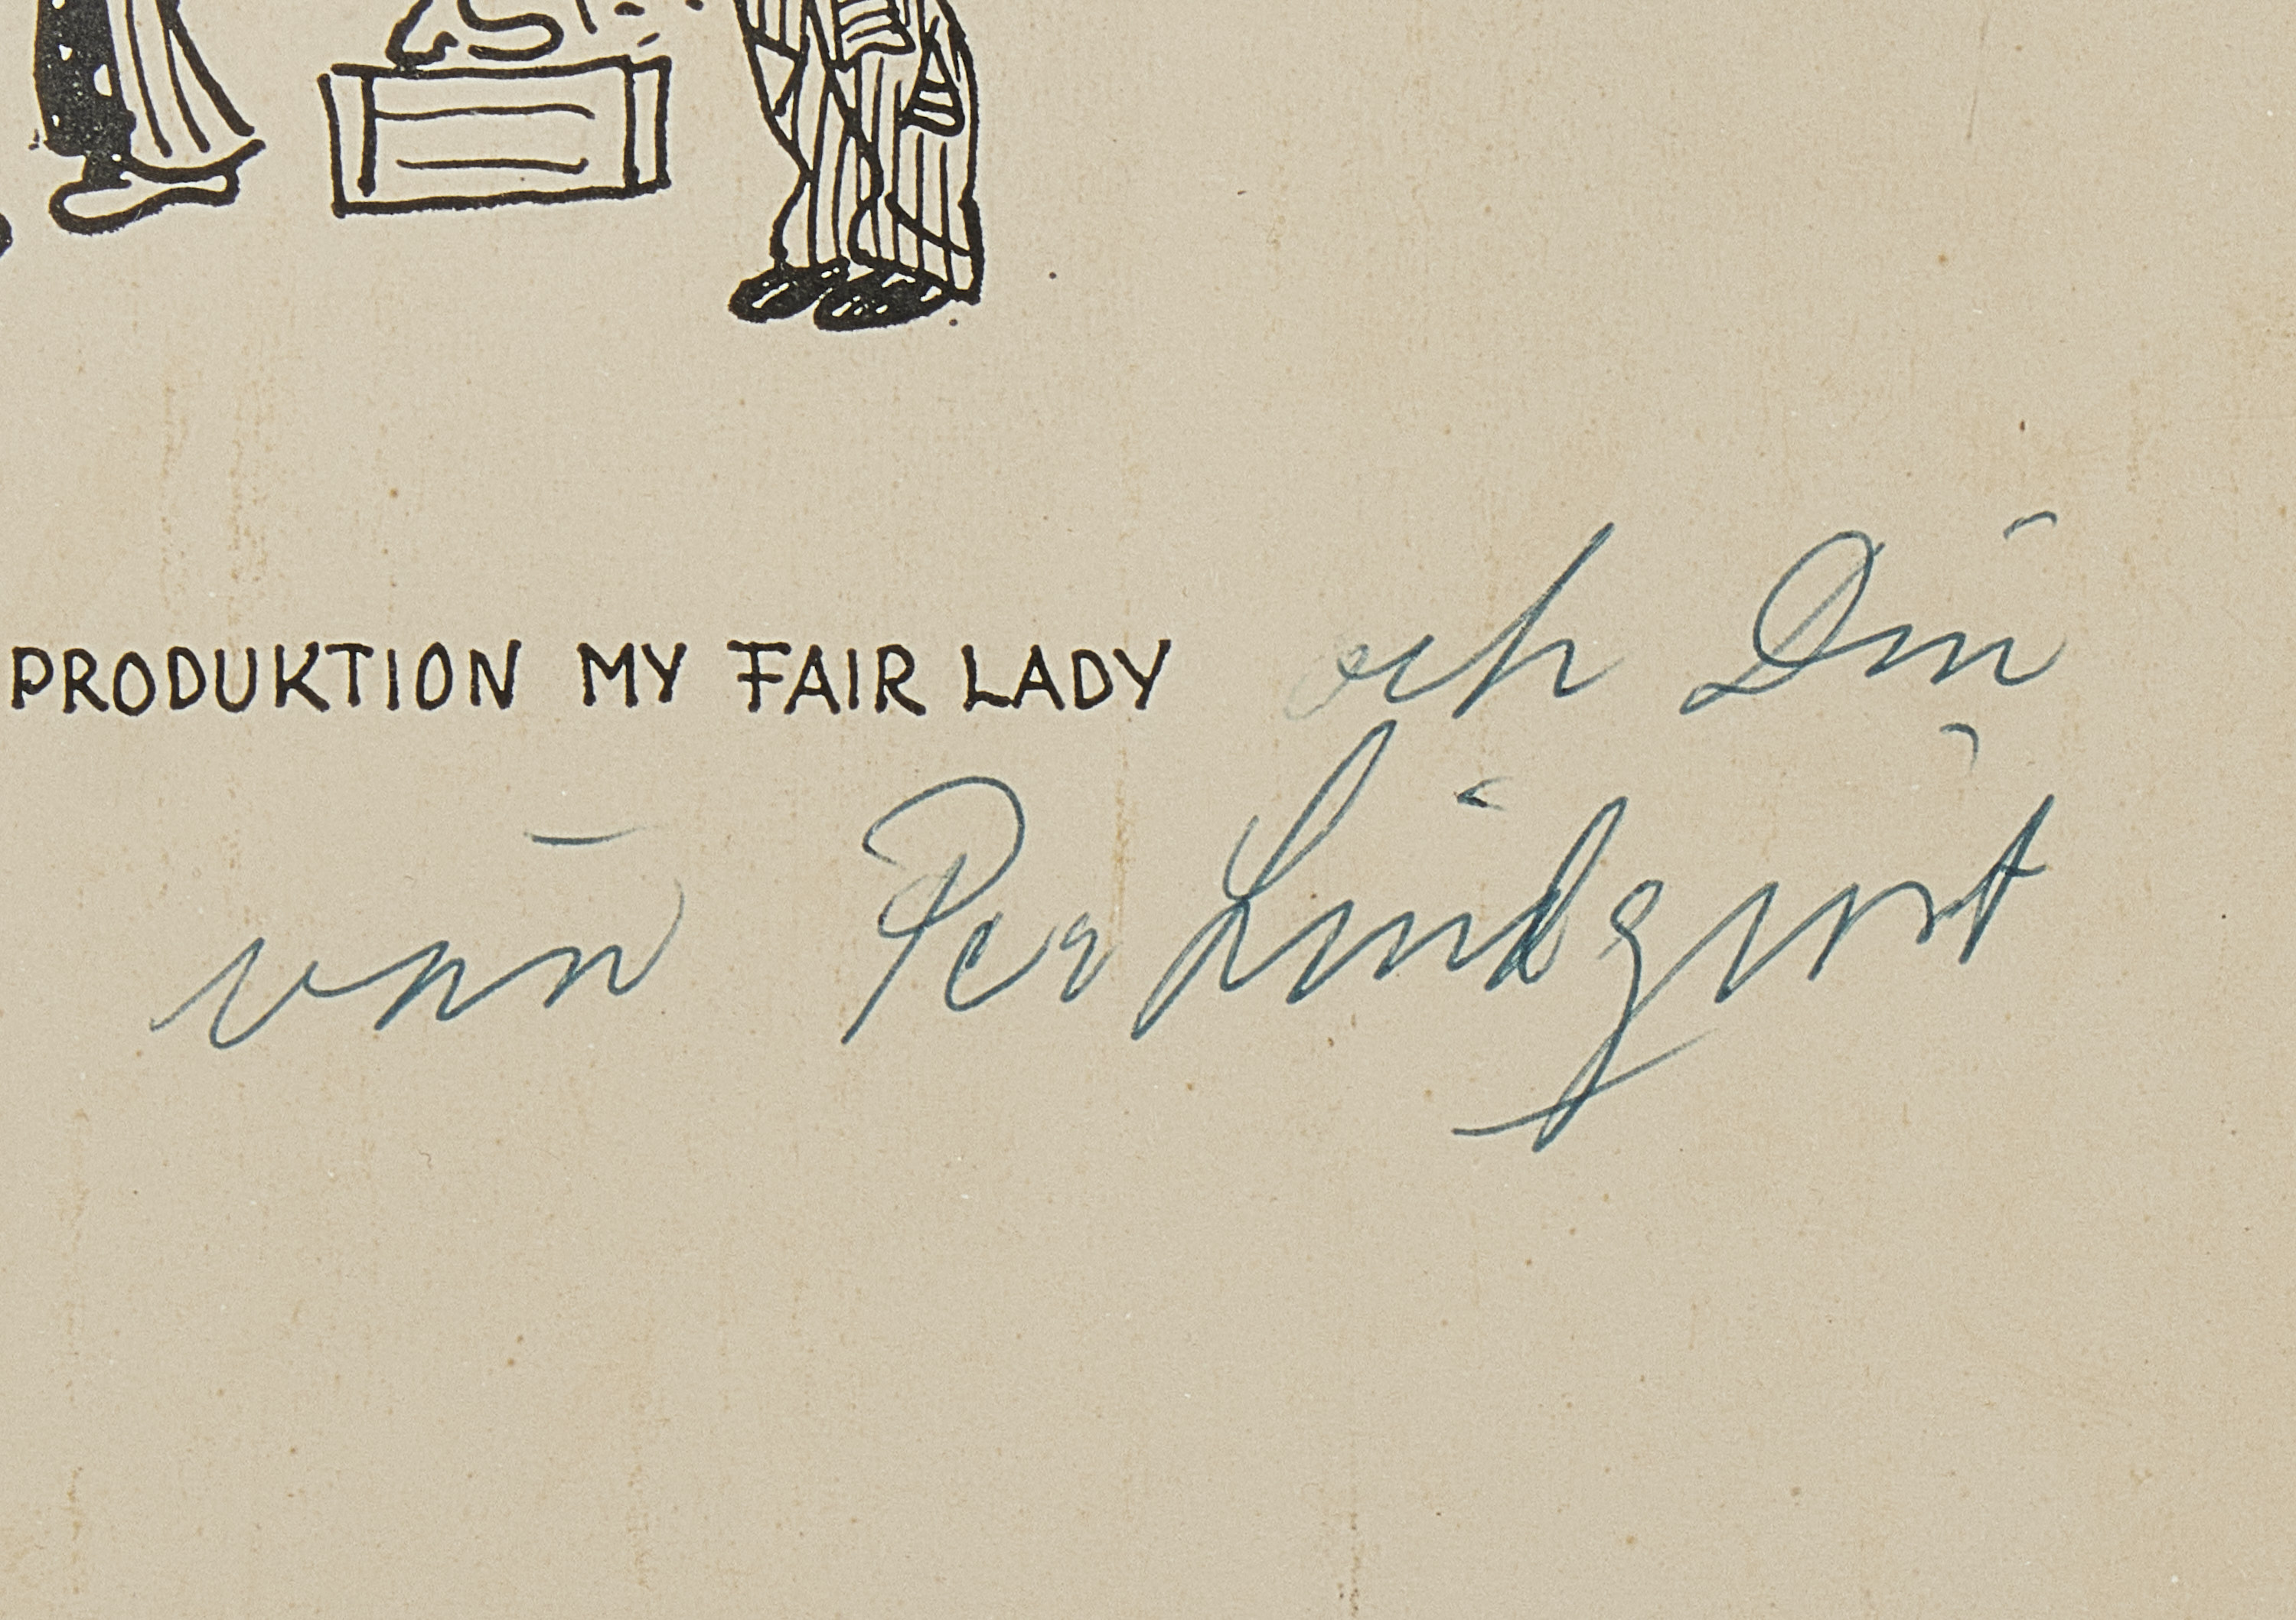 PRODUKTION MY FAIR LADY och Din
vän Per Lindqvist